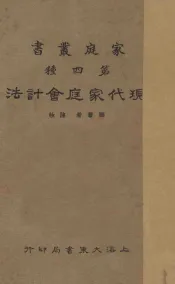 家庭叢書
第四種
現代家庭會計法
上海大東書局印行